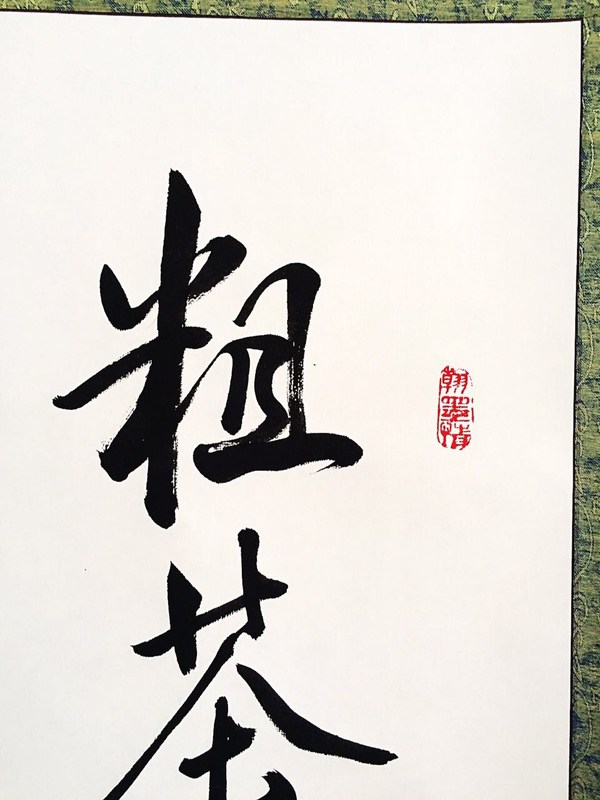 翰墨
粗茶